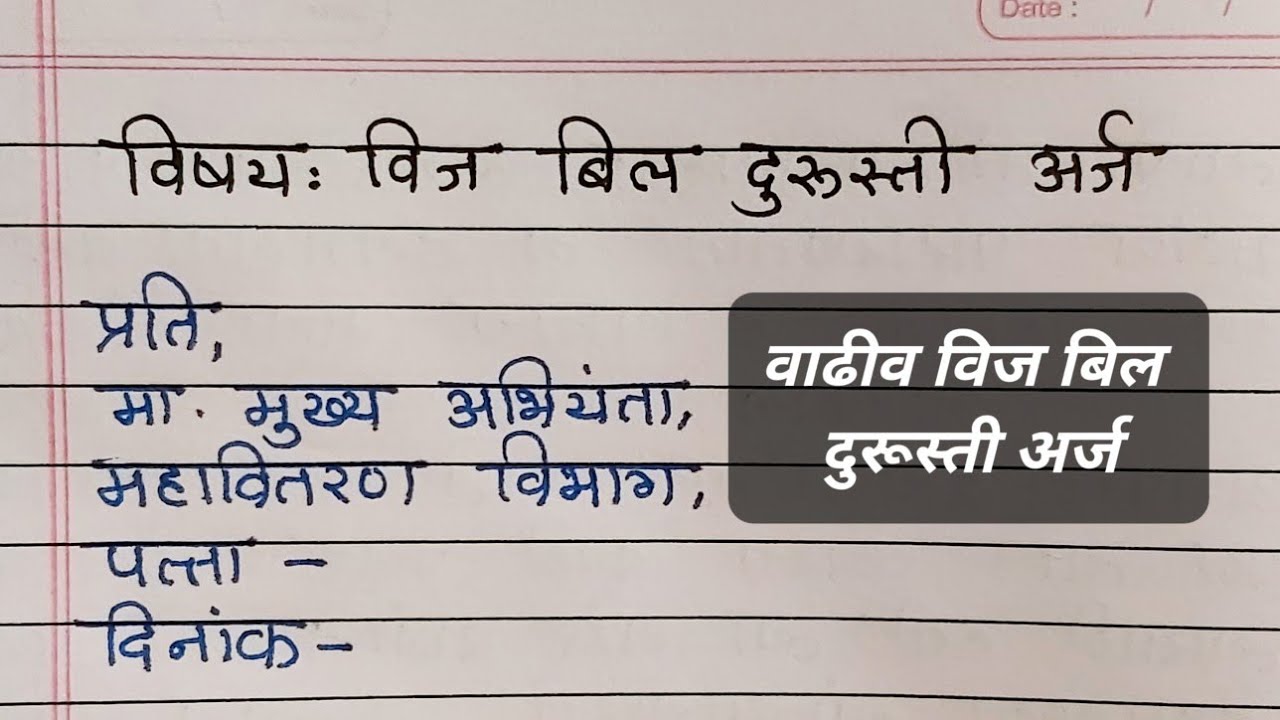 Date : / /
विषय: विज बिल दुरूस्ती अर्ज
प्रति,
मा. मुख्य अभियंता,
महावितरण विभाग,
पत्ता -
दिनांक -
वाढीव विज बिल
दुरूस्ती अर्ज